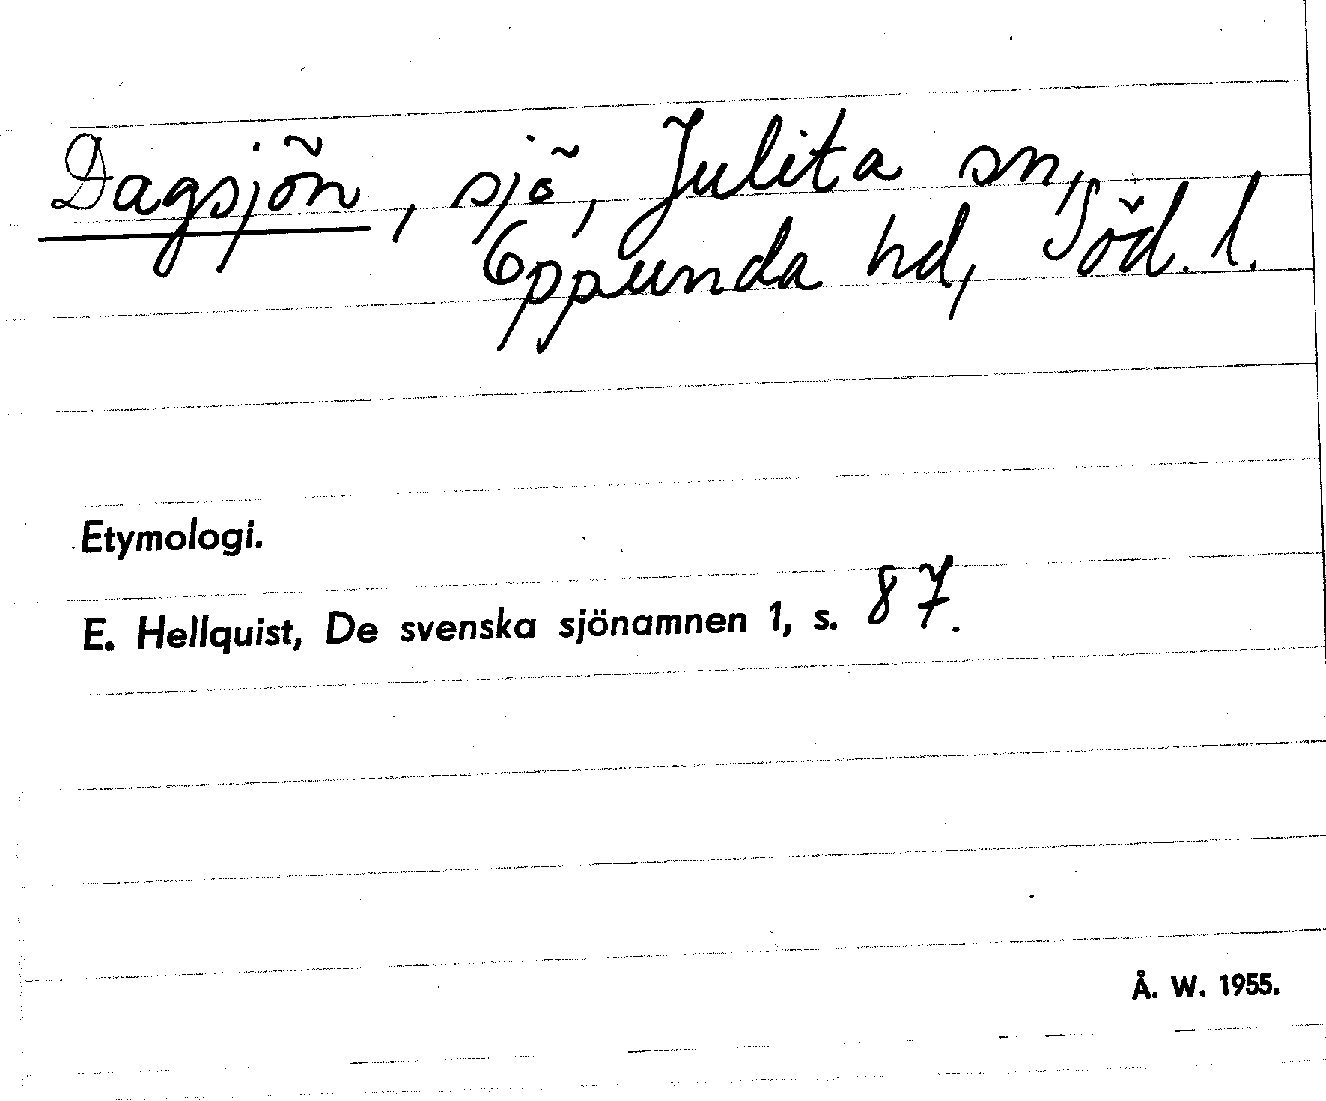 Dagsjön, sjö, Julita sn,
Oppunda hd, Söd. l.
Etymologi.
E. Hellquist, De svenska sjönamnen 1, s. 87.
Å. W. 1955.